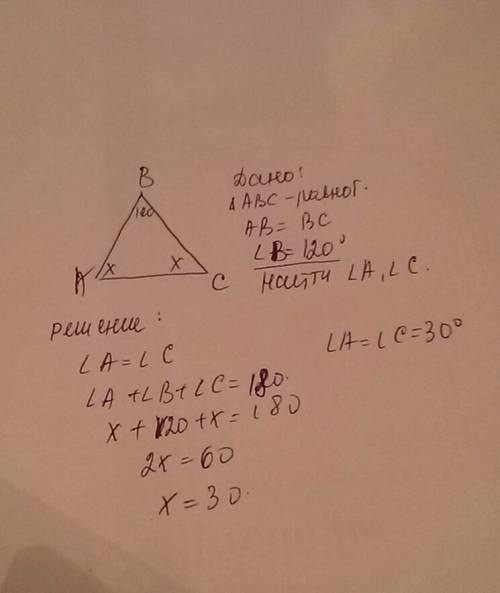 B
120
A x x C
Дано:
△ABC - равног.
AB = BC
∠B = 120°
Найти ∠A, ∠C.
Решение:
∠A = ∠C
∠A + ∠B + ∠C = 180.
x + 120 + x = 180
2x = 60
x = 30.
∠A = ∠C = 30°